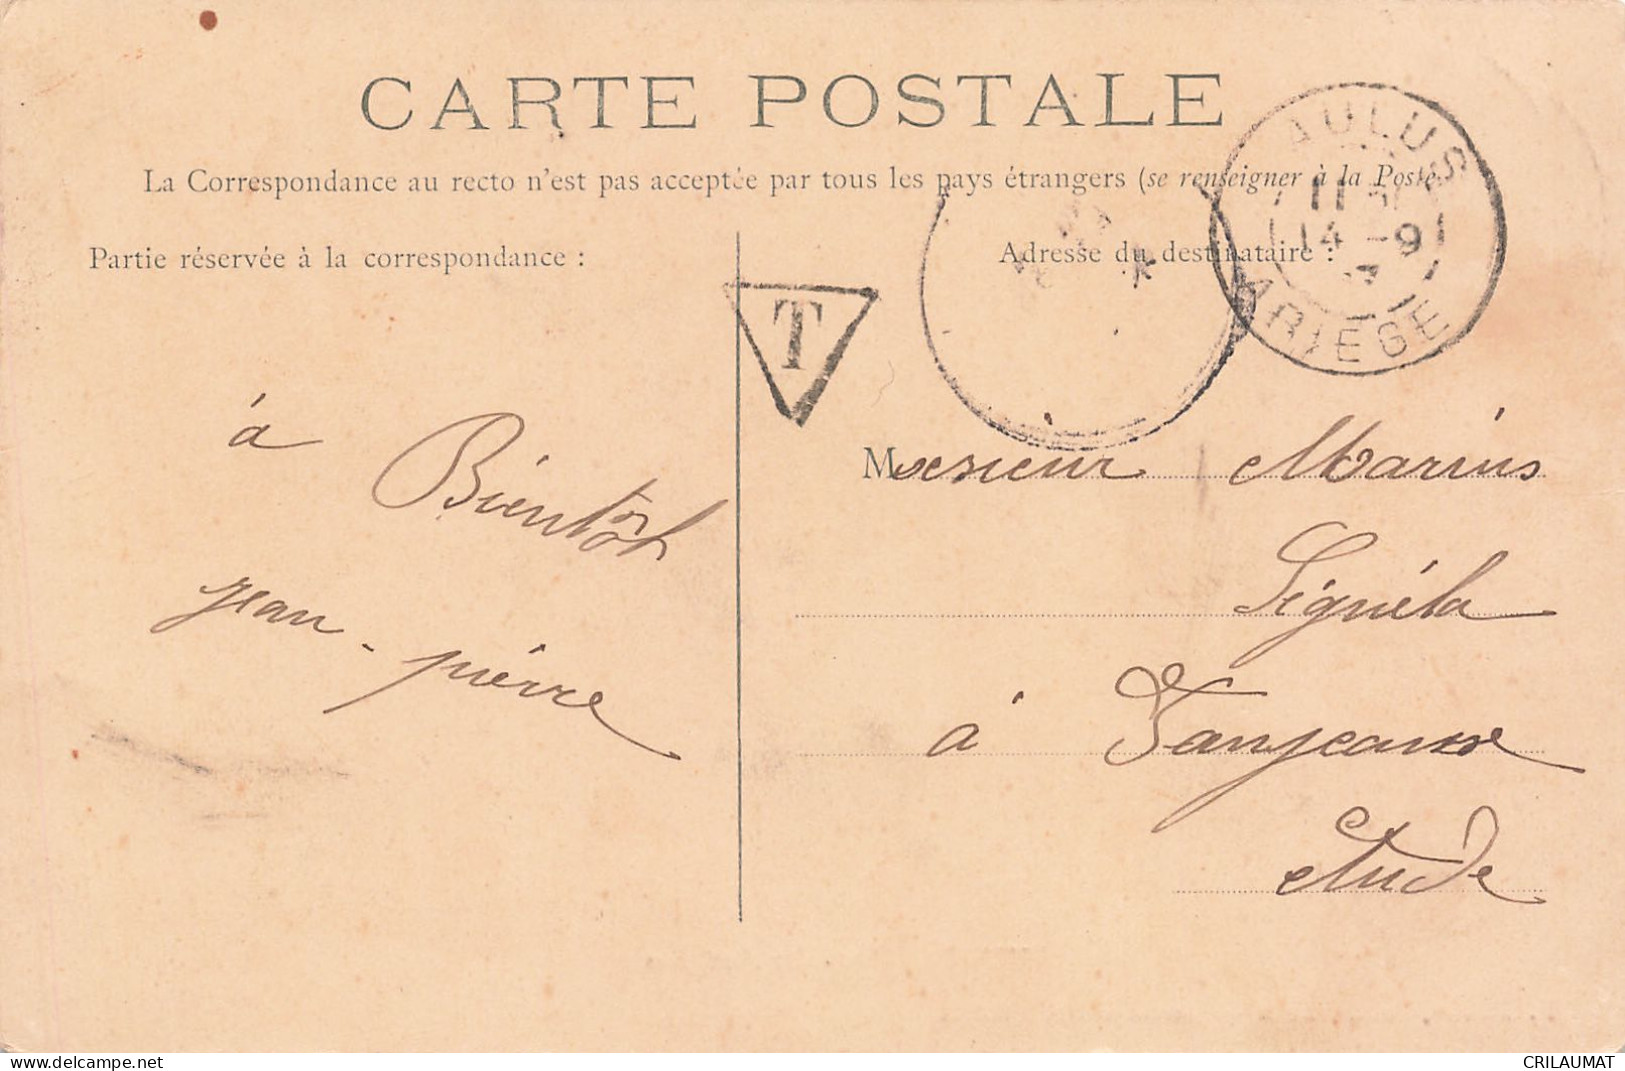 CARTE POSTALE
La Correspondance au recto n'est pas acceptée par tous les pays étrangers (se renseigner à la Poste
Partie réservée à la correspondance :
Adresse du destinataire :
AULUS
14 -9
ARIÈGE
T
à Bientôt
Jean-pierre
Monsieur Marius
Signéla
à Fanjeaux
etude
delcampe.net
CRILAUMAT